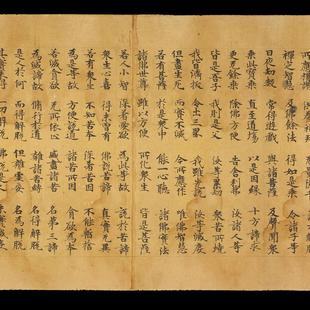 禪定智慧 及佛餘法 得如是乘 令諸子等
日夜劫數 常得遊戲 與諸菩薩 及聲聞眾
乘此寶乘 直至道場 以是因緣 十方諦求
更无餘乘 除佛方便 告舍利弗 汝諸人等
皆是吾子 我則是父 汝等累劫 眾苦所燒
我皆濟拔 令出三界 我雖先說 汝等滅度
但盡生死 而實不滅 今所應作 唯佛智慧
若有菩薩 於是眾中 能一心聽 諸佛實法
諸佛世尊 雖以方便 所化眾生 皆是菩薩
若人小智 深著愛欲 為此等故 說於苦諦
眾生心喜 得未曾有 佛說苦諦 真實无異
若有眾生 不知苦本 深著苦因 不能暫捨
為是等故 方便說道 諸苦所因 貪欲為本
若滅貪欲 无所依止 滅盡諸苦 名第三諦
為滅諦故 修行於道 離諸苦縛 名得解脫
是人於何 而得解脫 但離虛妄 名為解脫
其實未得 一切解脫